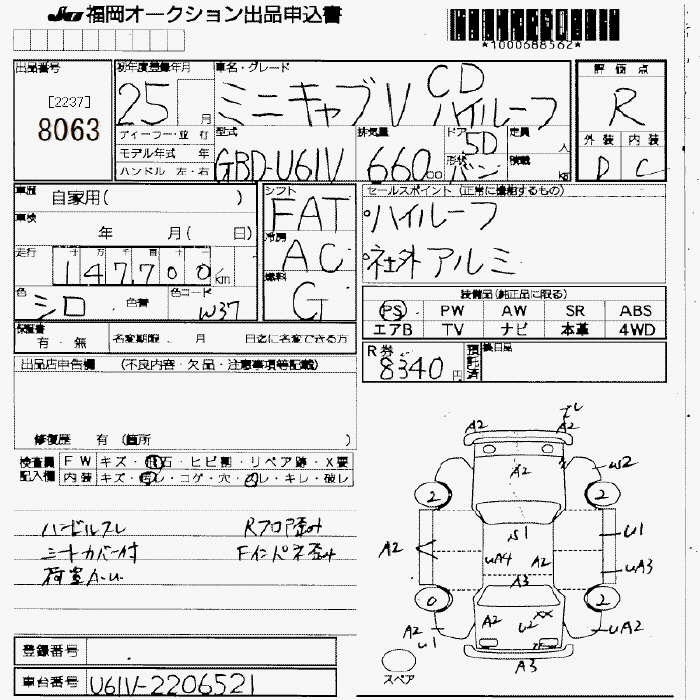 JU 福岡オークション出品申込書
*1000688562*
出品番号
[2237]
8063
初年度登録年月
25 月
車名・グレード
ミニキャブV CD ハイルーフ
ディーラー・並 有
モデル年式 年
ハンドル 左・右
型式
GBD-U61V
排気量
660 cc
ドア 5D
形状 バン
定員 人
積載 kg
評価点
R
外装 内装
D C
車歴 自家用( )
車検 年 月( 日)
走行 十 万 千 百 十
147,700 km
色 シロ 色替 色コード W37
シフト
FAT
冷房
AC
燃料
G
セールスポイント (正常に機能するもの)
・ハイルーフ
・社外アルミ
装備品(純正品に限る)
PS PW AW SR ABS
エアB TV ナビ 本革 4WD
保証書 有・無 名変期限 . 月 日迄に名変できる方
R券 8340 円 預託済 後日品
出品店申告欄 (不良内容・欠品・注意事項等記載)
修復歴 有 (箇所 )
検査員 記入欄
FW キズ・飛石・ヒビ割・リペア跡・X要
内装 キズ・汚レ・コゲ・穴・スレ・キレ・破レ
ハンドルスレ Rフロア歪み
シートカバー付 Fインパネ歪み
荷室
A2 A2
A2 W2
2 2
S1 U1
A2 UA4 A2 UA3
A3
0 2
A2 U2 XX
A2 U1 UA2
A3
スペア
登録番号
車台番号 U61V-2206521